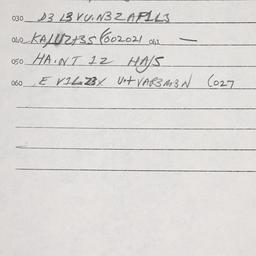 030 D3 L3 VU.N3Z AF1L3
040 KALUZ+3S (002021 042 —
050 HA.NT 12 HA/S
060 E V1L.Z3X U.+VAF3M3N (027